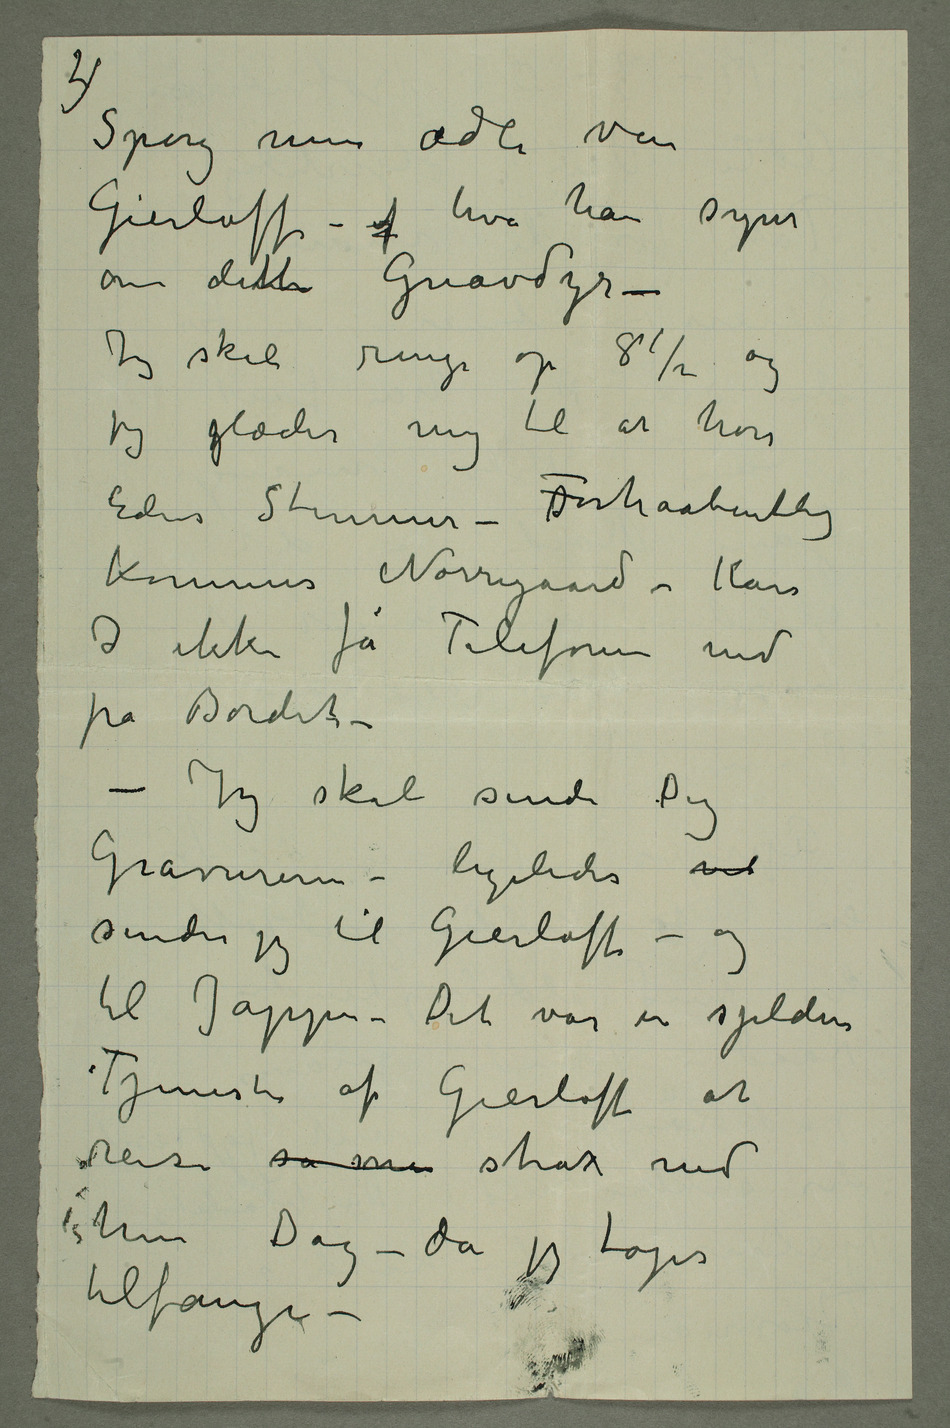 2)
Spørg min ædle ven
Gierløff – f hva han syns
om dette Gnavdyr –
Jeg skal ringe op 8 1/2 og
jeg glæder mig til at høre
Eders Stemmer – Forhaabentlig
kommer Nørregaard – Kan
I ikke få Telefonen ned
på Bordet –
– Jeg skal sende Dig
Gravuren – ligeledes ved
sender jeg til Gierløff – og
til Jappe – Det var en sjelden
Tjeneste af Gierløff at
reise så me strax ned
hin Dag – da jeg toges
tilfange –